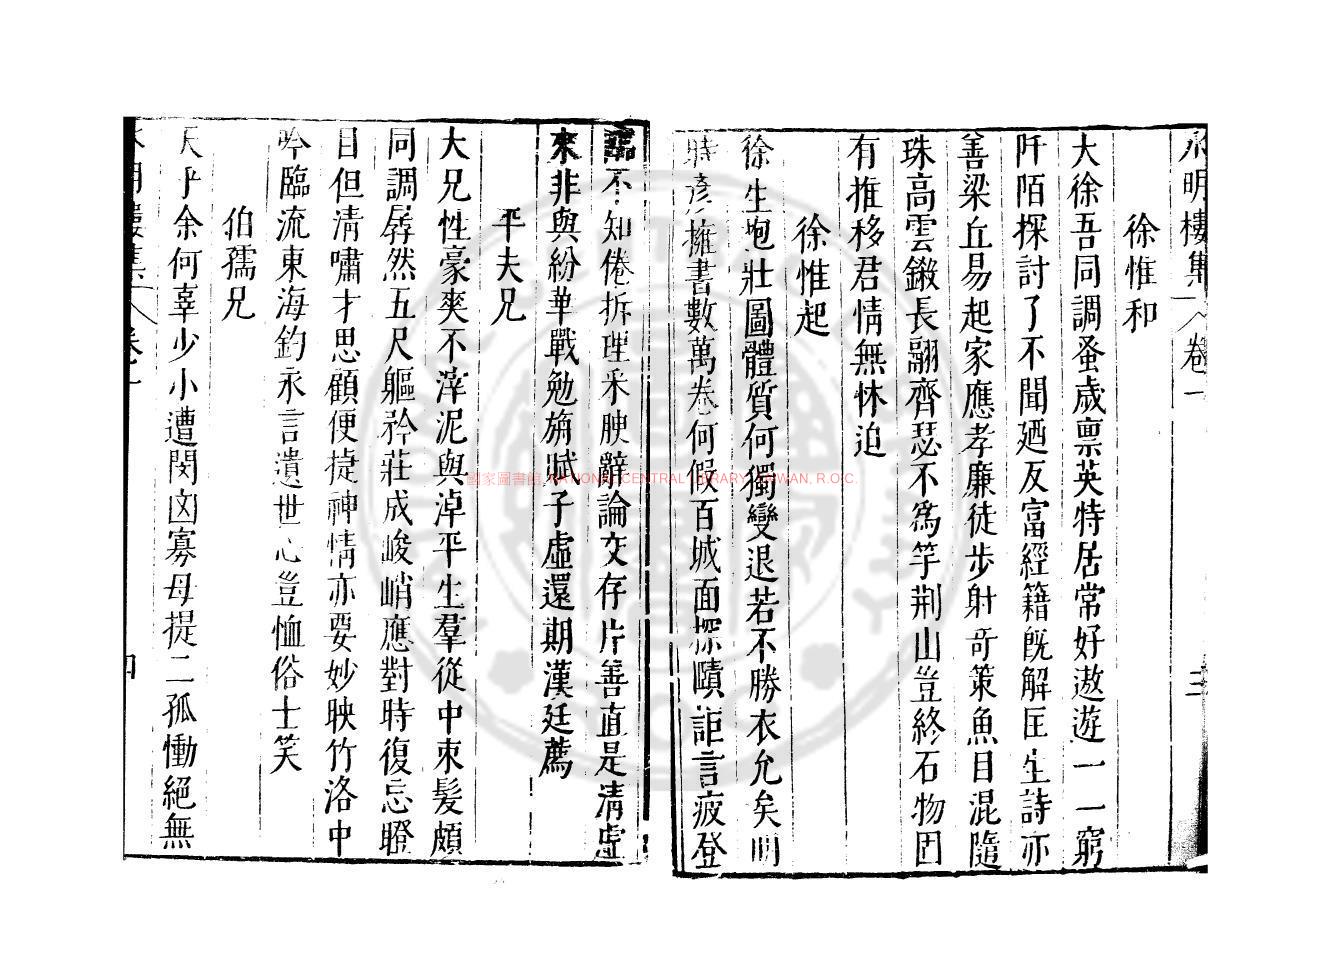 永明樓集 卷一 三
徐惟和
大徐吾同調蚤歲禀英特居常好遨遊一一窮
阡陌探討了不聞廼反富經籍既解匡生詩亦
善梁丘易起家應孝廉徒步射奇策魚目混隨
珠高雲鎩長翮齊瑟不爲竽荆山豈終石物固
有推移君情無怵迫
徐惟起
徐生抱壯圖體質何獨變退若不勝衣允矣明
時彥擁書數萬卷何假百城面探賾詎言疲登
臨不知倦拆理采腴辭論交存片善直是清虛
來非與紛華戰勉旃賦子虛還期漢廷薦
平夫兄
大兄性豪爽不滓泥與淖平生羣從中束髮頗
同調孱然五尺軀矜莊成峻峭應對時復忘瞪
目但清嘯才思顧便捷神情亦要妙映竹洛中
吟臨流東海釣永言遺世心豈恤俗士笑
伯孺兄
天乎余何辜少小遭閔凶寡母提二孤慟絕無
永明樓集 卷一 四
國家圖書館, NATIONAL CENTRAL LIBRARY, TAIWAN, R.O.C.